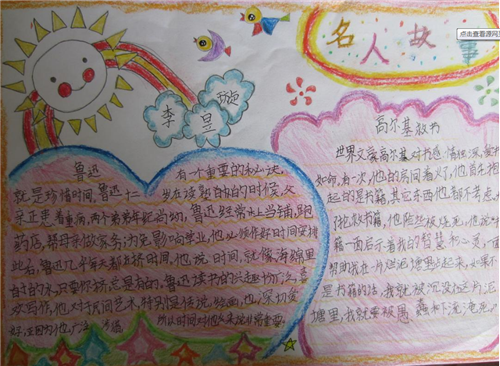 点击查看源网页
名人故
李昱璇
鲁迅
有一个重要的秘诀,
就是珍惜时间,鲁迅十二岁在读私塾的时候,父
亲正患着重病,两个弟弟年纪尚幼,鲁迅经常上当铺,跑
药店,帮母亲做家务;为免影响学业,他必须作好时间安排
此后,鲁迅几乎每天都在挤时间,他说:时间,就像海绵里
的水,只要你挤,总是有的,鲁迅读书的兴趣十分广泛,喜
欢写作,他对于民间艺术,特别是传说、绘画,也深切爱
好,正因为他广泛涉猎
所以时间对他来说非常重要。
高尔基救书
世界文豪高尔基对书感情很深,爱书
如命,有一次,他的房间着火了,他首先抱
起的是书籍,其它东西他都不考虑,为
了抢救书籍,他险些被烧死,他说:书
籍一面启示着我的智慧和心灵,一面
帮助我在一片烂泥塘里站起来,如果不
是书籍的话,我就被沉没在这片泥
塘里,我就要被愚蠢和下流淹死。